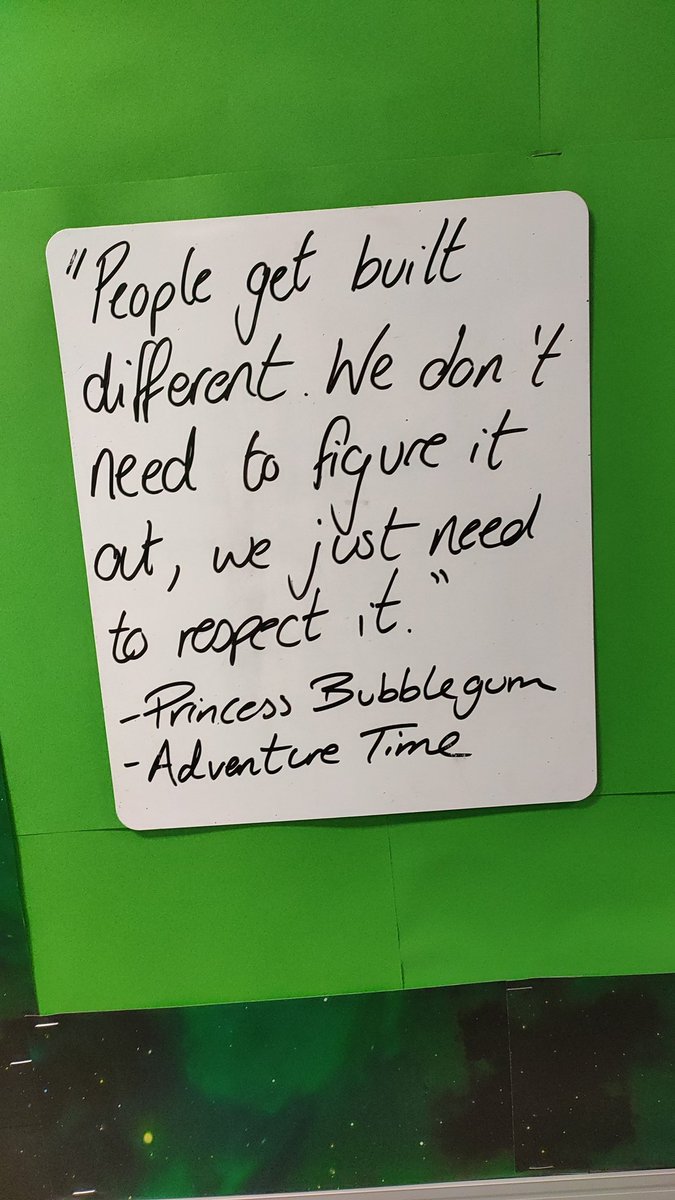 "People get built
different. We don't
need to figure it
out, we just need
to respect it."
-Princess Bubblegum
-Adventure Time